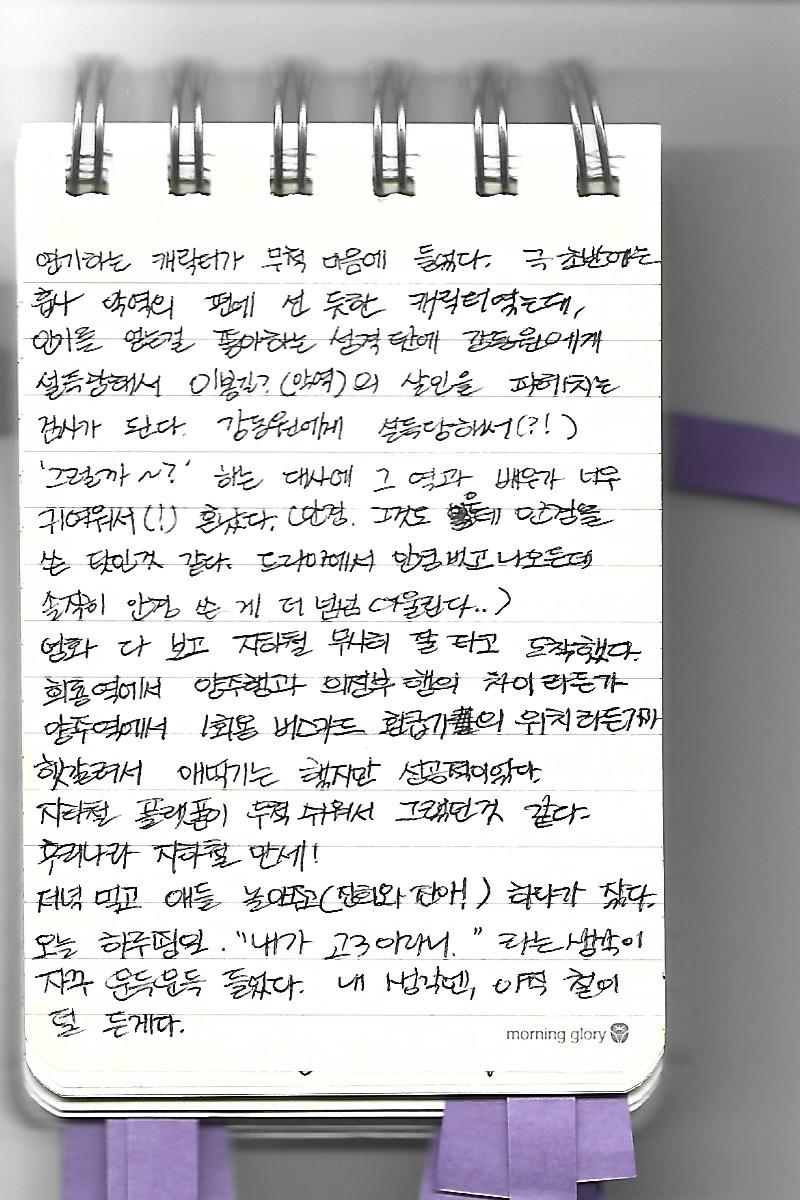 연기하는 캐릭터가 무척 마음에 들었다. 극 초반에는
흡사 악역의 편에 선 듯한 캐릭터였는데,
인기를 얻는걸 좋아하는 성격 탓에 강동원에게
설득당해서 이봉길?(악역)의 살인을 파헤치는
검사가 된다. 강동원에게 설득당해서(?!)
'그럴까~?' 하는 대사에 그 역과 배우가 너무
귀여워서(!) 혼났다. (안경. 그것도 안경을
쓴 탓인것 같다. 드라마에서 안경벗고 나오는데
솔직히 안경 쓴 게 더 넘넘 어울린다..)
영화 다 보고 지하철 무사히 잘 타고 도착했다.
회룡역에서 양주행과 의정부행의 차이라든가
양주역에서 1회용 버스카드 환급기의 위치라든가
헷갈려서 애먹기는 했지만 성공적이었다.
지하철 플랫폼이 무척 쉬워서 그랬던것 같다.
우리나라 지하철 만세!
저녁 먹고 애들 놀아주고( ) 하다가 잤다.
오늘 하루종일. "내가 고3이라니." 라는 생각이
자꾸 문득문득 들었다. 내 생각엔, 아직 철이
덜 든게다.
morning glory